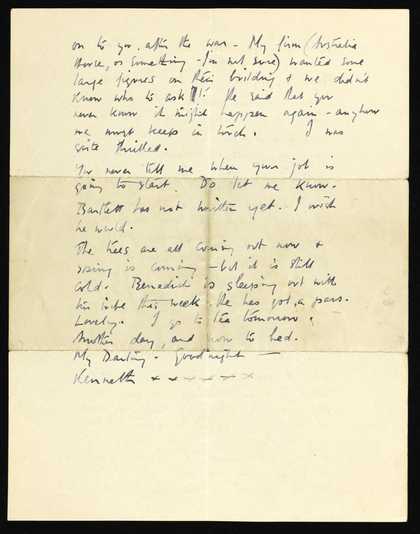 on to you. after the war – My firm (Australia
House, or something – I'm not sure) wanted some
large figures on their building & we didn't
know who to ask!! He said that you
never know it might happen again – anyhow
we must keep in touch. I was
quite thrilled.
You never tell me when your job is
going to start. Do let me know.
Bartlett has not written yet. I wish
he would.
The trees are all coming out now &
spring is coming – but it is still
cold. Benedict is sleeping out with
his tribe this week. He has got a pass.
Lovely. I go to tea tomorrow.
Another day, and now to bed.
My Darling. Goodnight —
Kenneth x x x x x x x